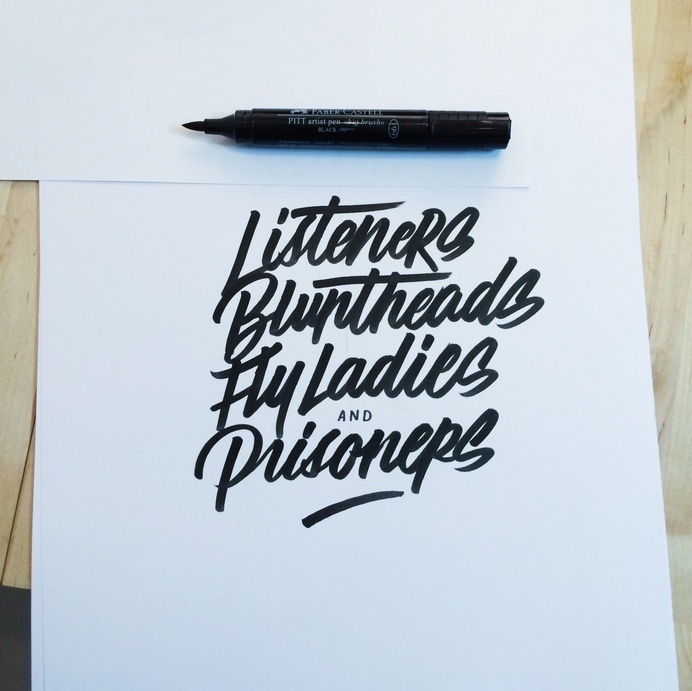 FABER-CASTELL
PITT artist pen »big brush«
BLACK 199***
199
Listeners
Bluntheads
Fly Ladies
AND
Prisoners